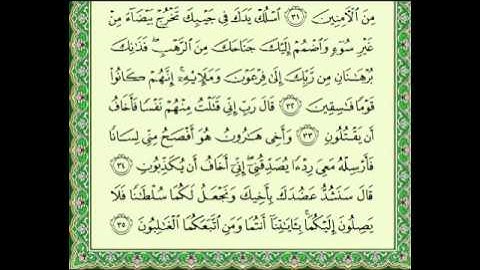 مِنَ ٱلْأَمِنِينَ ٣١ ٱسْلُكْ يَدَكَ فِي جَيْبِكَ تَخْرُجْ بَيْضَآءَ مِنْ
غَيْرِ سُوٓءٍ وَٱضْمُمْ إِلَيْكَ جَنَاحَكَ مِنَ ٱلرَّهْبِ فَذَٰنِكَ
بُرْهَٰنَانِ مِن رَّبِّكَ إِلَىٰ فِرْعَوْنَ وَمَلَإِي۟هِ إِنَّهُمْ كَانُوا۟
قَوْمًا فَٰسِقِينَ ٣٢ قَالَ رَبِّ إِنِّي قَتَلْتُ مِنْهُمْ نَفْسًا فَأَخَافُ
أَن يَقْتُلُونِ ٣٣ وَأَخِي هَٰرُونُ هُوَ أَفْصَحُ مِنِّي لِسَانًا
فَأَرْسِلْهُ مَعِيَ رِدْءًا يُصَدِّقُنِيٓ إِنِّيٓ أَخَافُ أَن يُكَذِّبُونِ ٣٤
قَالَ سَنَشُدُّ عَضُدَكَ بِأَخِيكَ وَنَجْعَلُ لَكُمَا سُلْطَٰنًا فَلَا
يَصِلُونَ إِلَيْكُمَا بِـَٔايَٰتِنَآ أَنتُمَا وَمَنِ ٱتَّبَعَكُمَا ٱلْغَٰلِبُونَ ٣٥